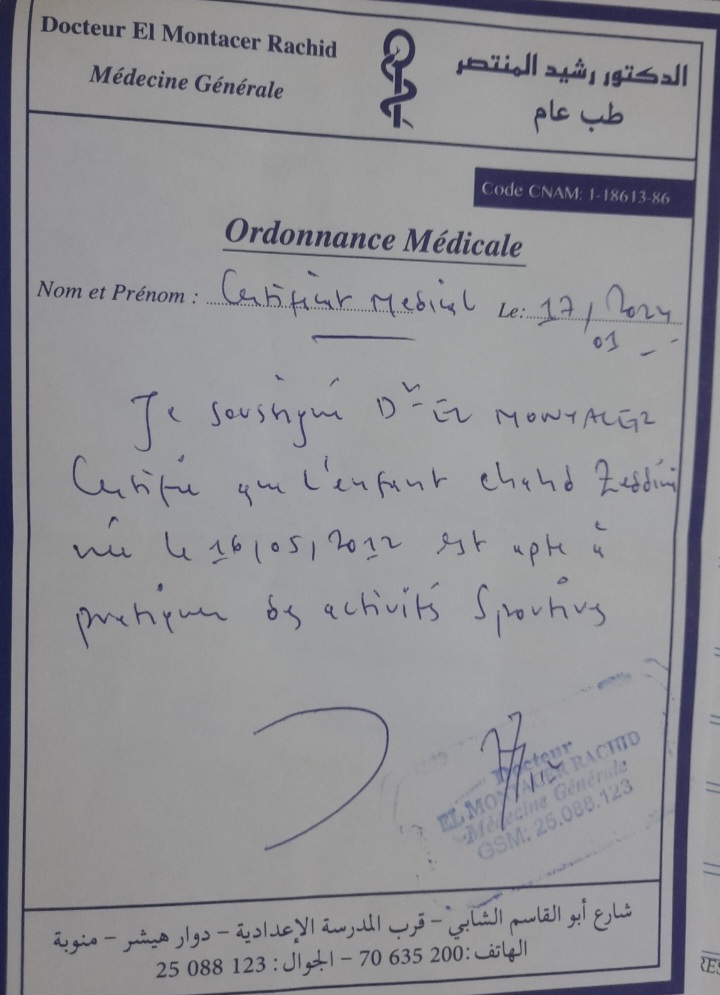 Docteur El Montacer Rachid
Médecine Générale
الدكتور رشيد المنتصر
طب عام
Code CNAM: 1-18613-86
Ordonnance Médicale
Nom et Prénom : Certificat Medical Le: 17/01/2024
Je soussigné Dr EL MONTACER
Certifie que l'enfant chahd Zeddini
née le 16/05/2012 est apte à
pratiquer des activités Sportives
Docteur
EL MONTACER RACHID
Médecine Générale
GSM: 25.088.123
شارع أبو القاسم الشابي - قرب المدرسة الإعدادية - دوار هيشر - منوبة
الهاتف: 70 635 200 - الجوال: 25 088 123